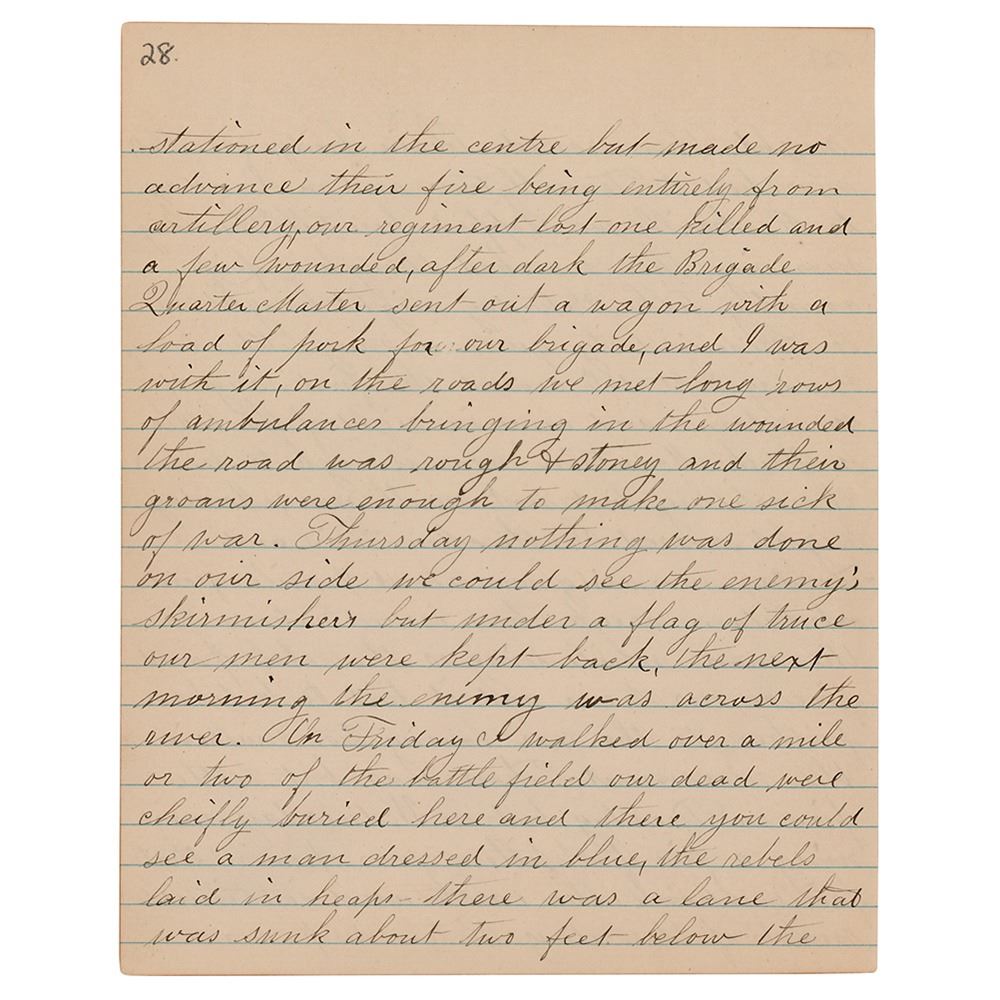 28.
stationed in the centre but made no
advance their fire being entirely from
artillery, our regiment lost one killed and
a few wounded, after dark the Brigade
Quarter Master sent out a wagon with a
load of pork for our brigade, and I was
with it, on the roads we met long rows
of ambulances bringing in the wounded
the road was rough & stoney and their
groans were enough to make one sick
of war. Thursday nothing was done
on our side we could see the enemy's
skirmishers but under a flag of truce
our men were kept back, the next
morning the enemy was across the
river. On Friday I walked over a mile
or two of the battle field our dead were
cheifly buried here and there you could
see a man dressed in blue, the rebels
laid in heaps - there was a lane that
was sunk about two feet below the